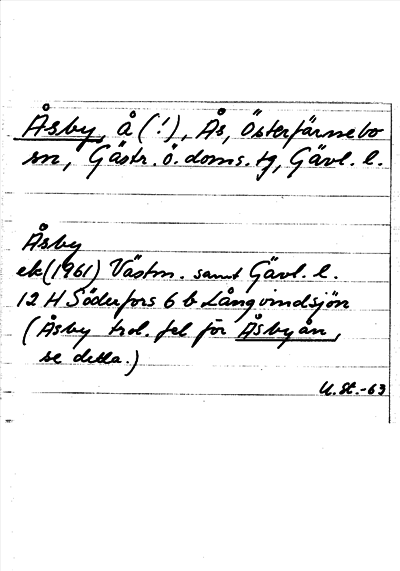 Åsby, å (!), Ås, Österfärnebo
sn, Gästr. ö. doms. tg, Gävl. l.
Åsby
ek (1961) Västm. samt Gävl. l.
12 H Söderfors 6 b Långvindsjön
(Åsby trol. fel för Åsbyån,
se detta.)
U. St. -63